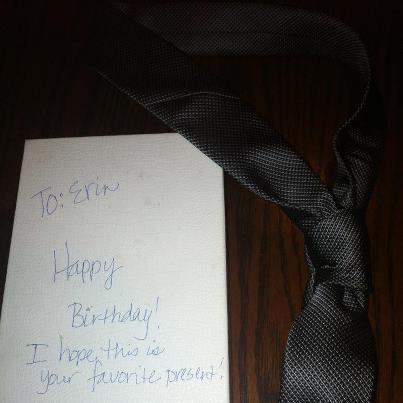 To: Erin
Happy
Birthday!
I hope this is
your favorite present!